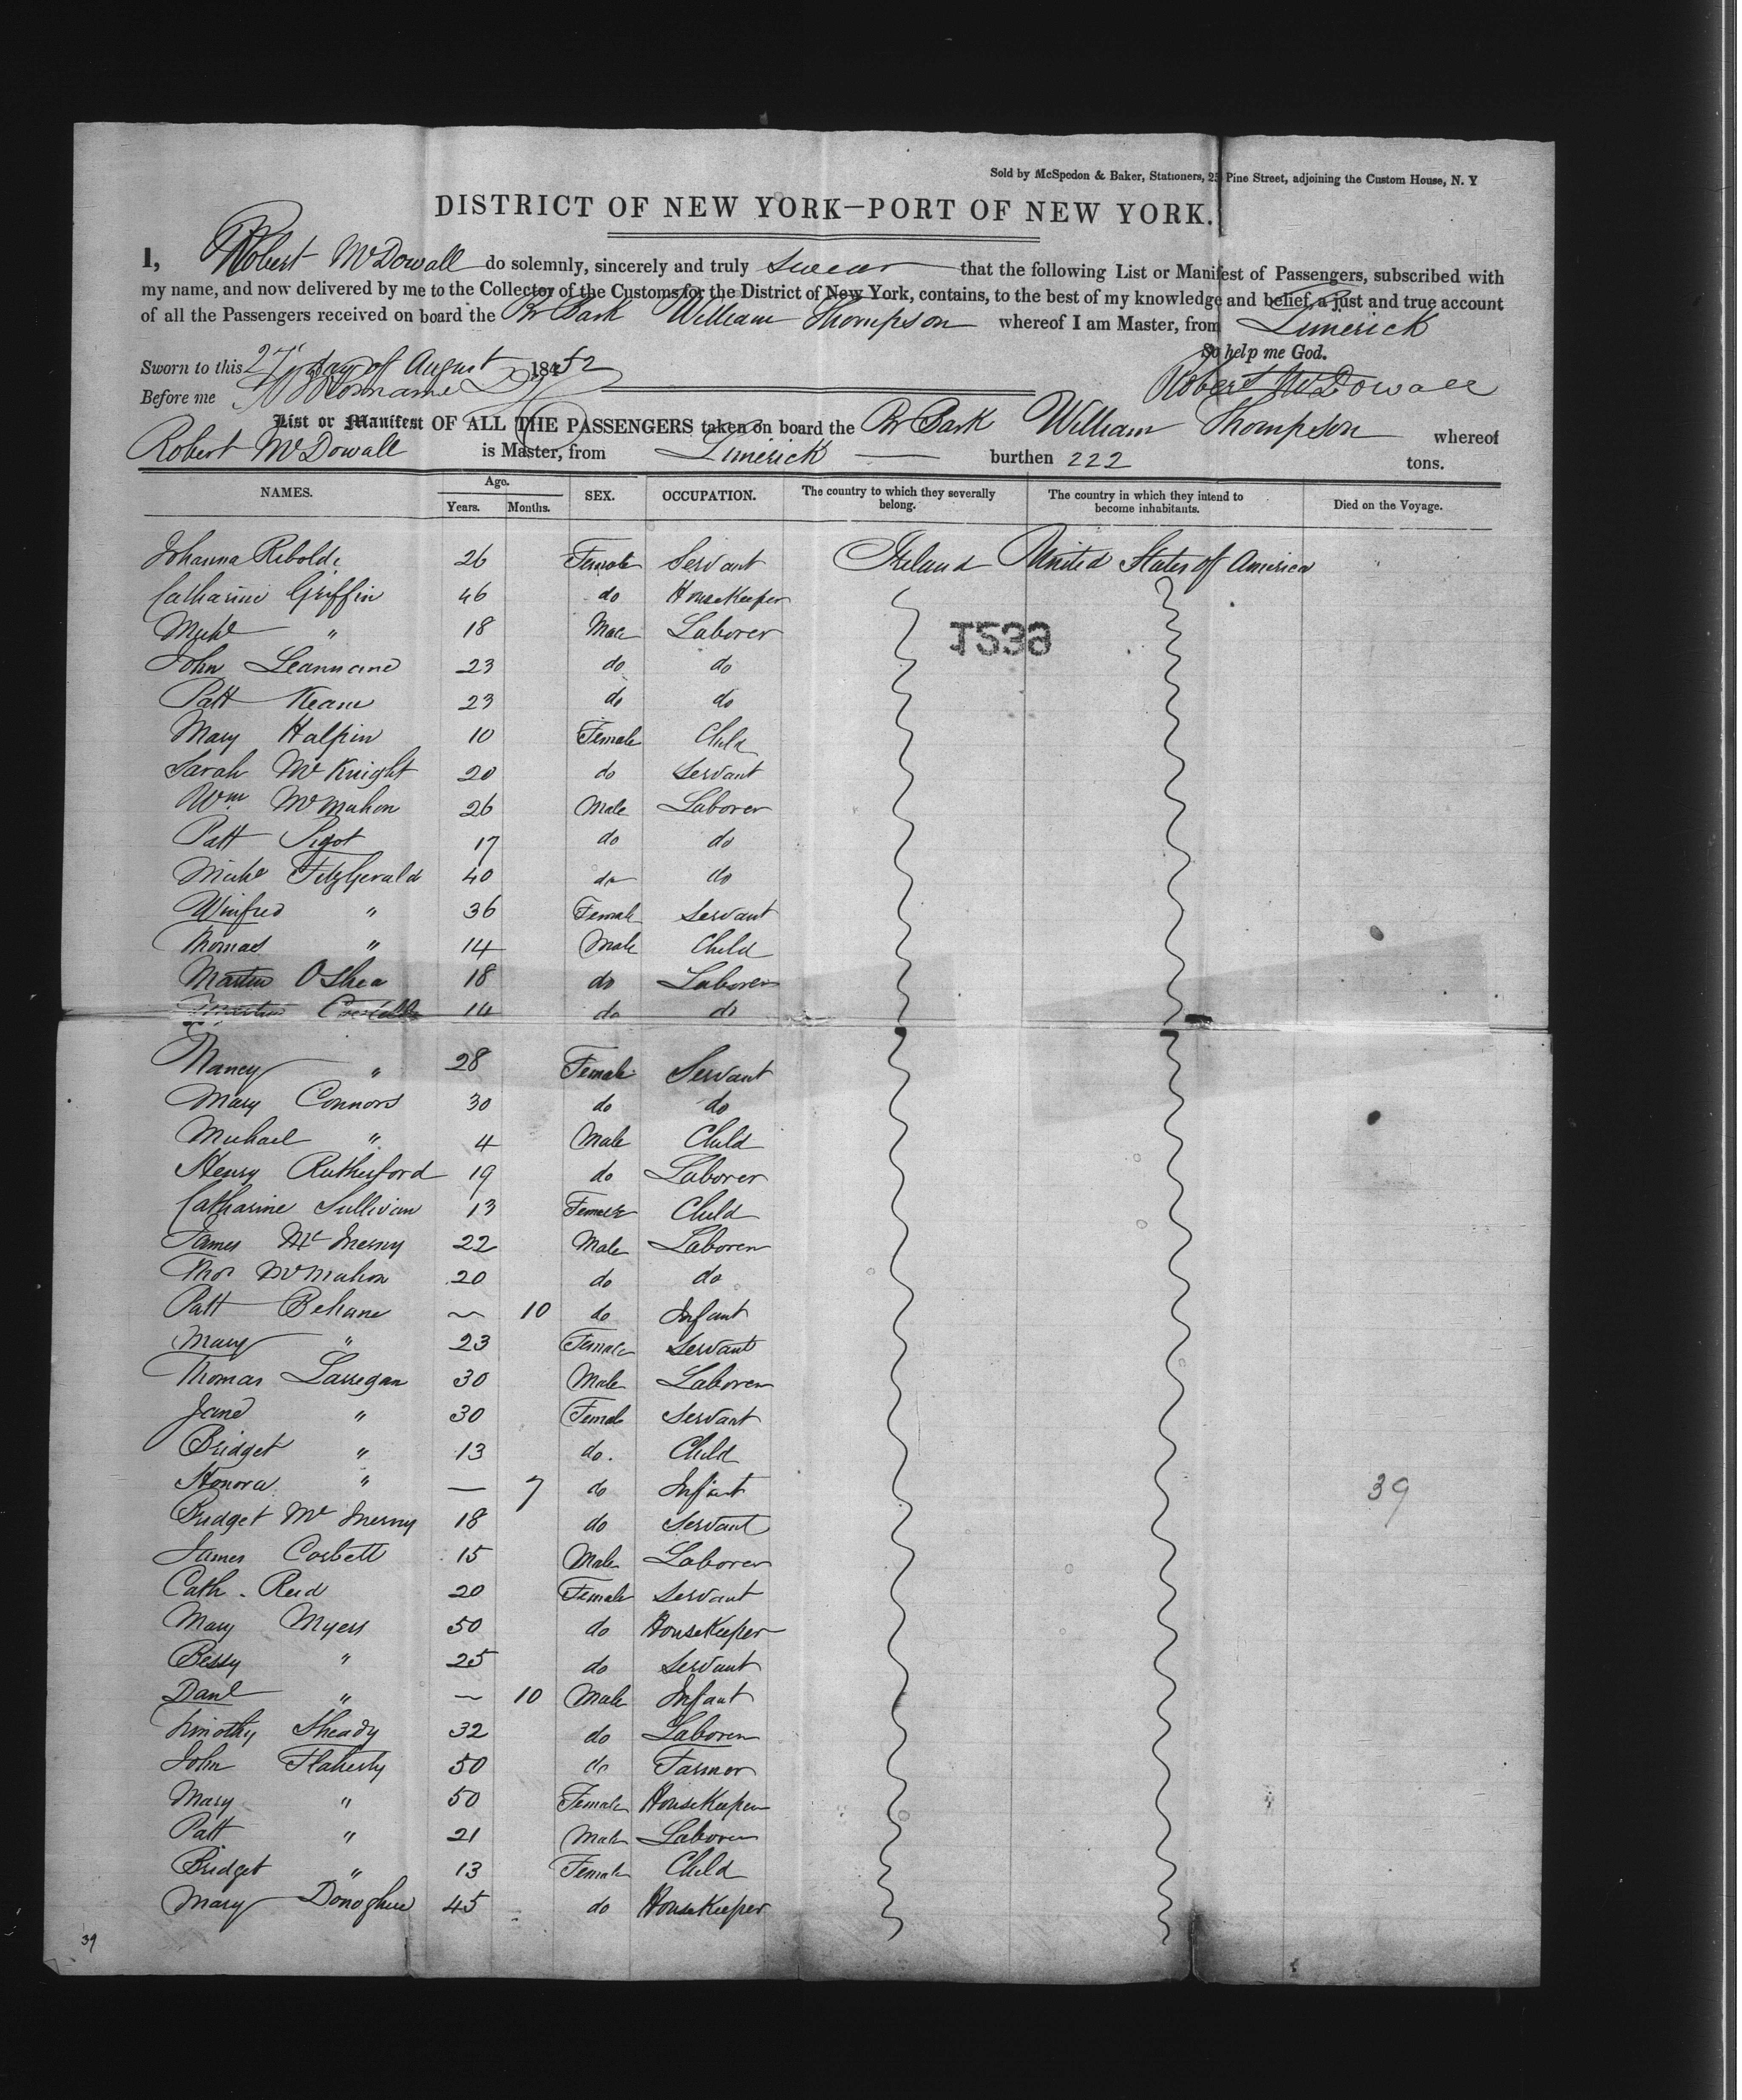 Sold by McSpedon & Baker, Stationers, 25 Pine Street, adjoining the Custom House, N. Y
DISTRICT OF NEW YORK—PORT OF NEW YORK.
I, Robert McDowall do solemnly, sincerely and truly swear that the following List or Manifest of Passengers, subscribed with
my name, and now delivered by me to the Collector of the Customs for the District of New York, contains, to the best of my knowledge and belief, a just and true account
of all the Passengers received on board the Br Bark William Thompson whereof I am Master, from Limerick
So help me God.
Sworn to this 27 day of August 1852
Robert McDowall
Before me
List or Manifest OF ALL THE PASSENGERS taken on board the Br Bark William Thompson whereof
Robert McDowall is Master, from Limerick — burthen 222 tons.
NAMES. Age. Years. Months. SEX. OCCUPATION. The country to which they severally belong. The country in which they intend to become inhabitants. Died on the Voyage.
Johanna 26 Female Servant Ireland United States of America
Catharine Griffin 46 do HouseKeeper
Michl " 18 Male Laborer
1536
John 23 do do
Patt Keane 23 do do
Mary Halpin 10 Female Child
Sarah McKnight 20 do Servant
Wm McMahon 26 Male Laborer
Patt 17 do do
Michl FitzGerald 40 do do
Winifred " 36 Female Servant
Thomas " 14 Male Child
Martin OShea 18 do Laborer
14 do do
Nancy " 28 Female Servant
Mary Connors 30 do do
Michael " 4 Male Child
Henry Rutherford 19 do Laborer
Catharine Sullivan 13 Female Child
James McInerny 22 Male Laborer
Thos McMahon 20 do do
Patt Behane ~ 10 do Infant
Mary " 23 Female Servant
Thomas Larregan 30 Male Laborer
Jane " 30 Female Servant
Bridget " 13 do. Child
Honora " — 7 do Infant
39
Bridget McInerny 18 do Servant
James Corbett 15 Male Laborer
Cath. Reid 20 Female Servant
Mary Myers 50 do HouseKeeper
Bessy " 25 do Servant
Danl " ~ 10 Male Infant
Timothy Sheady 32 do Laborer
John Flaherty 50 do Farmer
Mary " 50 Female HouseKeeper
Patt " 21 Male Laborer
Bridget " 13 Female Child
Mary Donoghue 45 do HouseKeeper
39